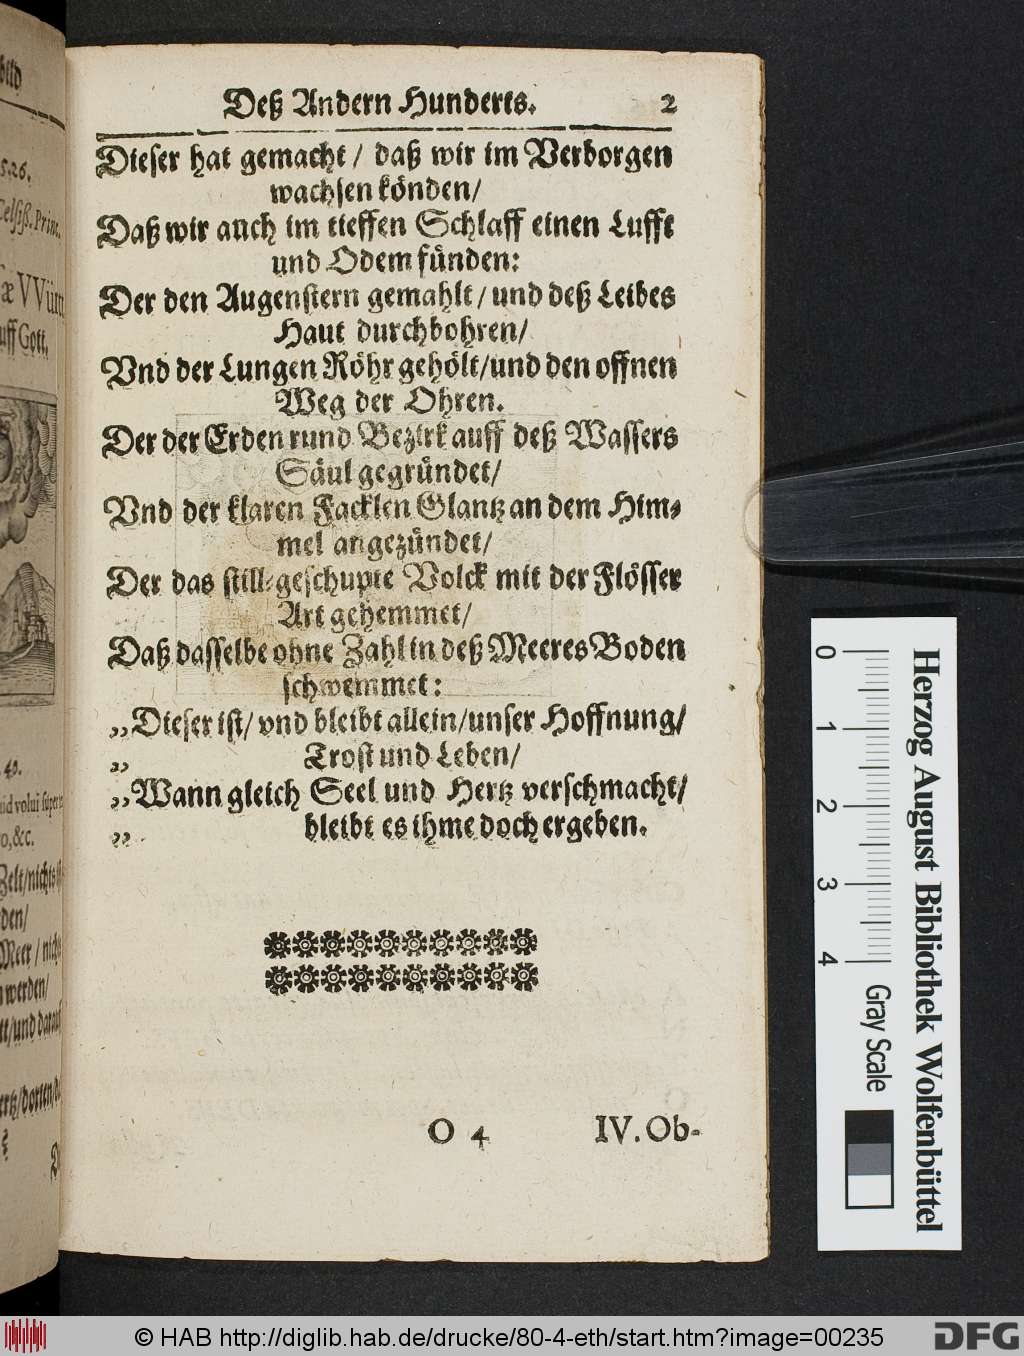 Deß Andern Hunderts. 2
Dieser hat gemacht / daß wir im Verborgen
wachsen könden /
Daß wir auch im tieffen Schlaff einen Lufft
und Odem fünden:
Der den Augenstern gemahlt / und deß Leibes
Haut durchbohren /
Vnd der Lungen Röhr gehölt / und den offnen
Weg der Ohren.
Der der Erden rund Bezirk auff deß Wassers
Säul gegründet /
Vnd der klaren Facklen Glantz an dem Him-
mel angezündet /
Der das still-geschupte Volck mit der Flösser
Art gehemmet /
Daß dasselbe ohne Zahl in deß Meeres Boden
schwemmet:
„Dieser ist / vnd bleibt allein / unser Hoffnung /
„ Trost und Leben /
„Wann gleich Seel und Hertz verschmacht /
„ bleibt es ihme doch ergeben.
O 4 IV. Ob-
bild
5.26.
Celsß. Prin
æ VVürt
uff Gott.
49.
uid volui super
o, &c.
Zelt / nichts
den /
Meer / nich
werden /
tt / und darauf
ertz / dorten /
0 1 2 3 4
Gray Scale
Herzog August Bibliothek Wolfenbüttel
© HAB http://diglib.hab.de/drucke/80-4-eth/start.htm?image=00235
DFG